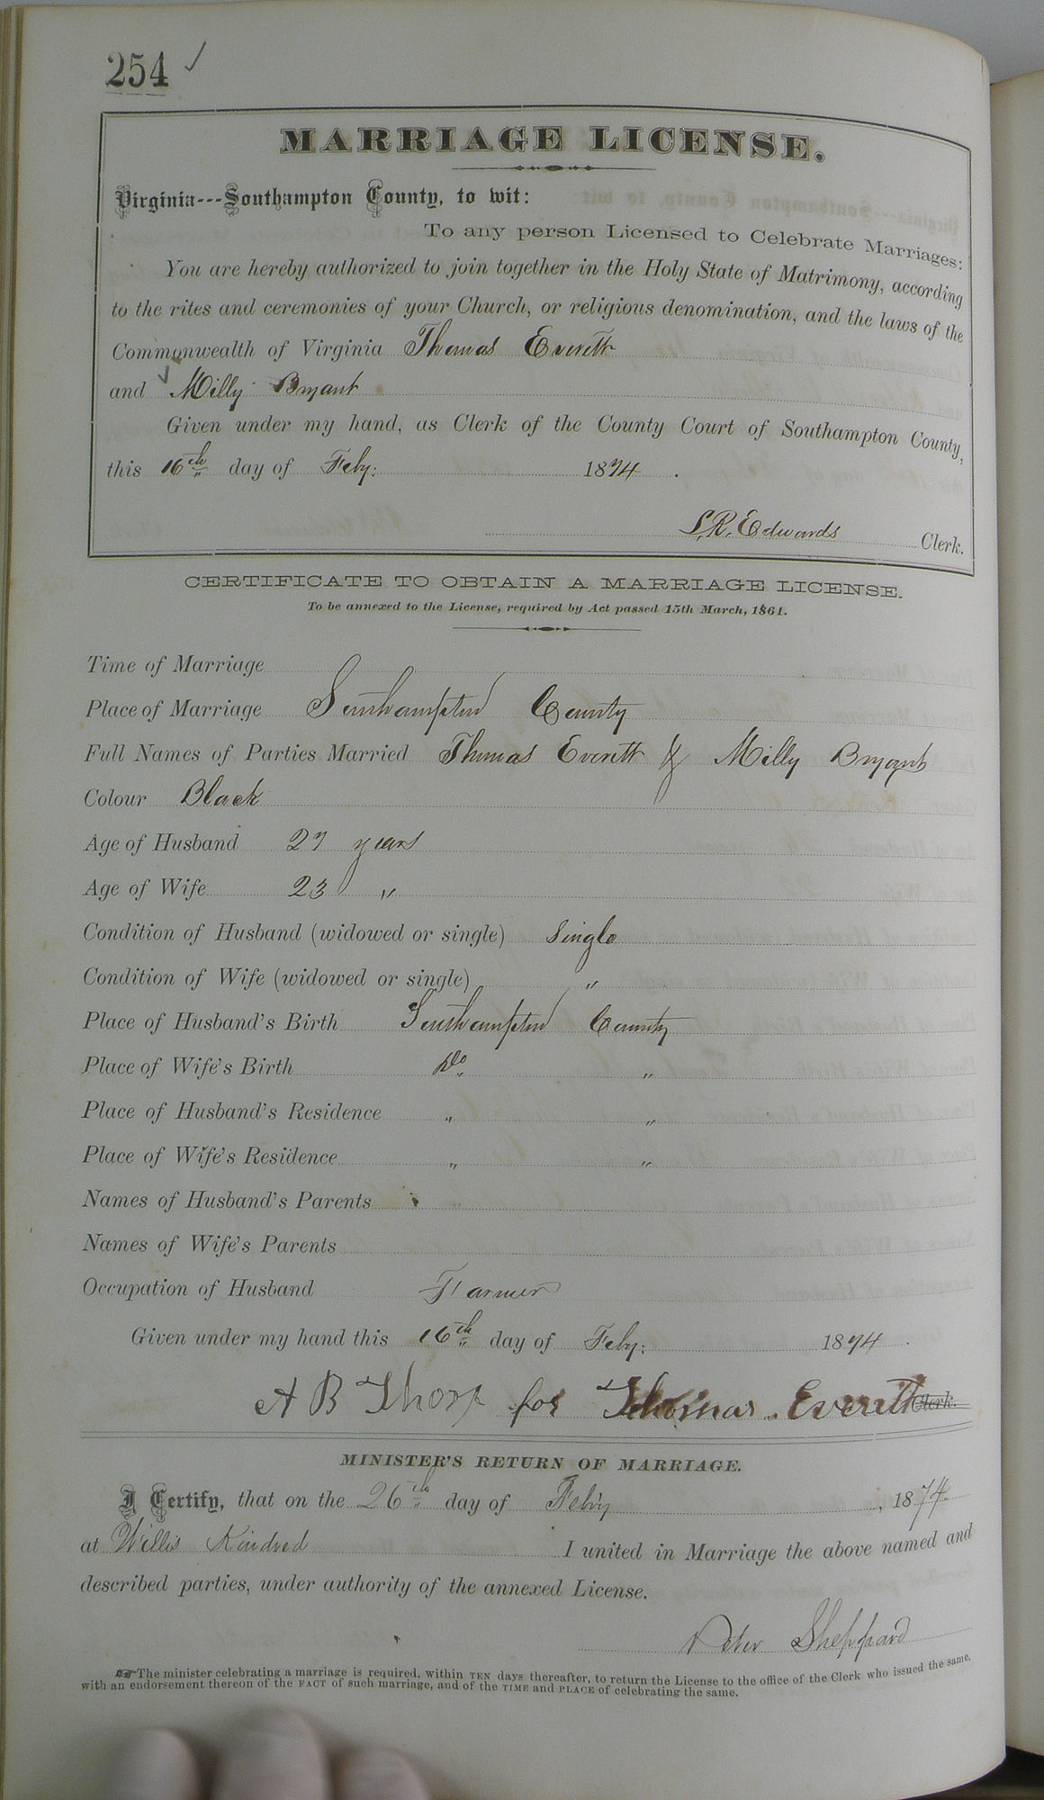 254 ✓
MARRIAGE LICENSE.
Virginia---Southampton County, to wit:
To any person Licensed to Celebrate Marriages:
You are hereby authorized to join together in the Holy State of Matrimony, according
to the rites and ceremonies of your Church, or religious denomination, and the laws of the
Commonwealth of Virginia Thomas Everett
and Milly Bryant
Given under my hand, as Clerk of the County Court of Southampton County,
this 16th day of Feby: 1874.
L.R. Edwards Clerk.
CERTIFICATE TO OBTAIN A MARRIAGE LICENSE.
To be annexed to the License, required by Act passed 15th March, 1861.
Time of Marriage
Place of Marriage Southampton County
Full Names of Parties Married Thomas Everett & Milly Bryant
Colour Black
Age of Husband 27 years
Age of Wife 23 "
Condition of Husband (widowed or single) Single
Condition of Wife (widowed or single) "
Place of Husband's Birth Southampton County
Place of Wife's Birth Do "
Place of Husband's Residence " "
Place of Wife's Residence " "
Names of Husband's Parents
Names of Wife's Parents
Occupation of Husband Farmer
Given under my hand this 16th day of Feby: 1874.
A B Thorp for Thomas Everett Clerk.
MINISTER'S RETURN OF MARRIAGE.
I Certify, that on the 26th day of Feb'y, 1874
at Willis Kindred I united in Marriage the above named and
described parties, under authority of the annexed License.
Peter Sheppard
☞ The minister celebrating a marriage is required, within TEN days thereafter, to return the License to the office of the Clerk who issued the same,
with an endorsement thereon of the FACT of such marriage, and of the TIME and PLACE of celebrating the same.